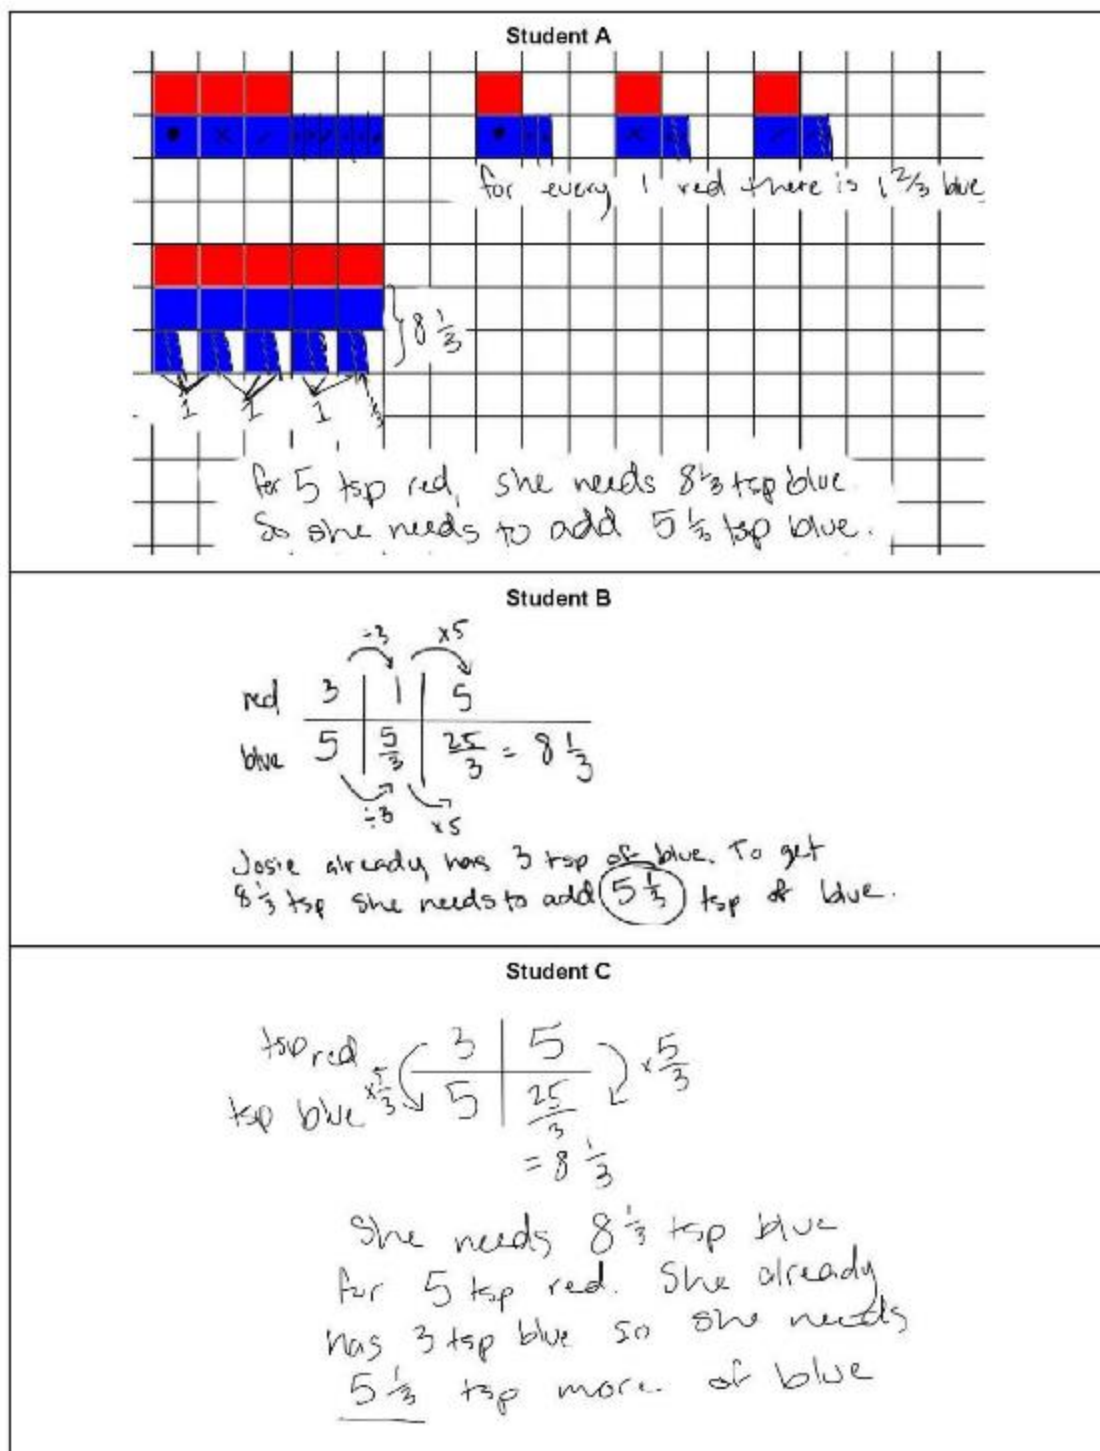 Student A
for every 1 red there is 1 2/3 blue
} 8 1/3
1 1 1 1/3
for 5 tsp red, she needs 8 1/3 tsp blue.
So she needs to add 5 1/3 tsp blue.
Student B
÷3 ×5
red 3 1 5
blue 5 5/3 25/3 = 8 1/3
÷3 ×5
Josie already has 3 tsp of blue. To get
8 1/3 tsp she needs to add 5 1/3 tsp of blue.
Student C
tsp red 3 5
×5/3 ×5/3
tsp blue 5 25/3
= 8 1/3
She needs 8 1/3 tsp blue
for 5 tsp red. She already
has 3 tsp blue so she needs
5 1/3 tsp more of blue